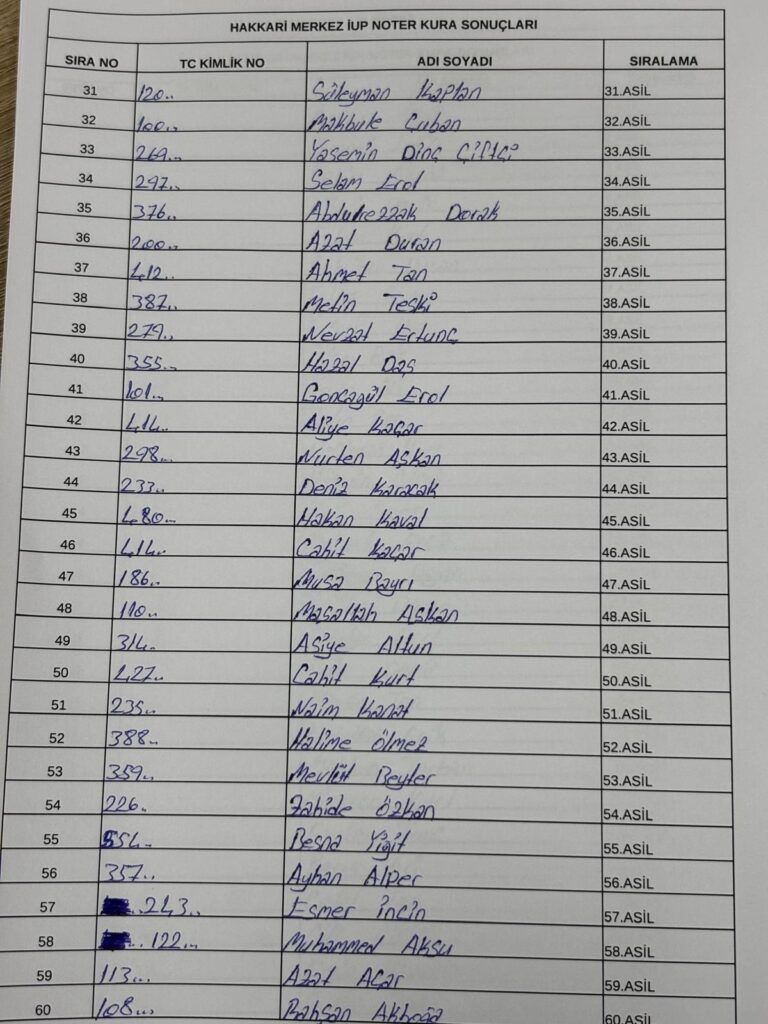 HAKKARİ MERKEZ İUP NOTER KURA SONUÇLARI
SIRA NO TC KİMLİK NO ADI SOYADI SIRALAMA
31 120.. Süleyman Kaplan 31.ASİL
32 100... Makbule Çuban 32.ASİL
33 269... Yasemin Dinç Çiftçi 33.ASİL
34 297.. Selam Erol 34.ASİL
35 376.. Abdulrezzak Dorak 35.ASİL
36 200... Azat Duran 36.ASİL
37 412.. Ahmet Tan 37.ASİL
38 387.. Metin Teski 38.ASİL
39 279.. Nevzat Ertunç 39.ASİL
40 355... Hazal Daş 40.ASİL
41 101... Goncagül Erol 41.ASİL
42 414... Aliye Kaçar 42.ASİL
43 298... Nurten Aşkan 43.ASİL
44 233... Deniz Karacak 44.ASİL
45 480... Hakan Kaval 45.ASİL
46 414... Cahit Kaçar 46.ASİL
47 186.. Musa Bayrı 47.ASİL
48 110... Maşallah Aşkan 48.ASİL
49 314.. Asiye Altun 49.ASİL
50 427.. Cahit Kurt 50.ASİL
51 235.. Naim Kanat 51.ASİL
52 388.. Halime Ölmez 52.ASİL
53 359... Mevlüt Beyter 53.ASİL
54 226.. Zahide Özkan 54.ASİL
55 554.. Besna Yiğit 55.ASİL
56 357.. Ayhan Alper 56.ASİL
57 ..243.. Esmer İncin 57.ASİL
58 .. 122... Muhammed Aksu 58.ASİL
59 113... Azat Açar 59.ASİL
60 108... Bahşan Akboğa 60.ASİL